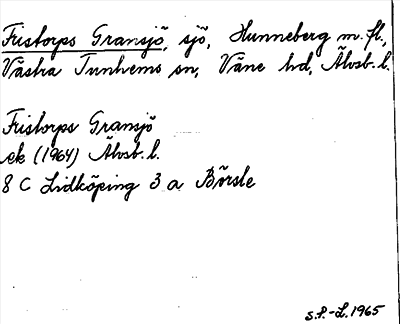 Fristorps Gransjö, sjö, Hunneberg m. fl.,
Västra Tunhems sn, Väne hd, Älvsb. l.
Fristorps Gransjö
ek (1964) Älvsb. l.
8 C Lidköping 3 a Börsle
S.P.-L. 1965